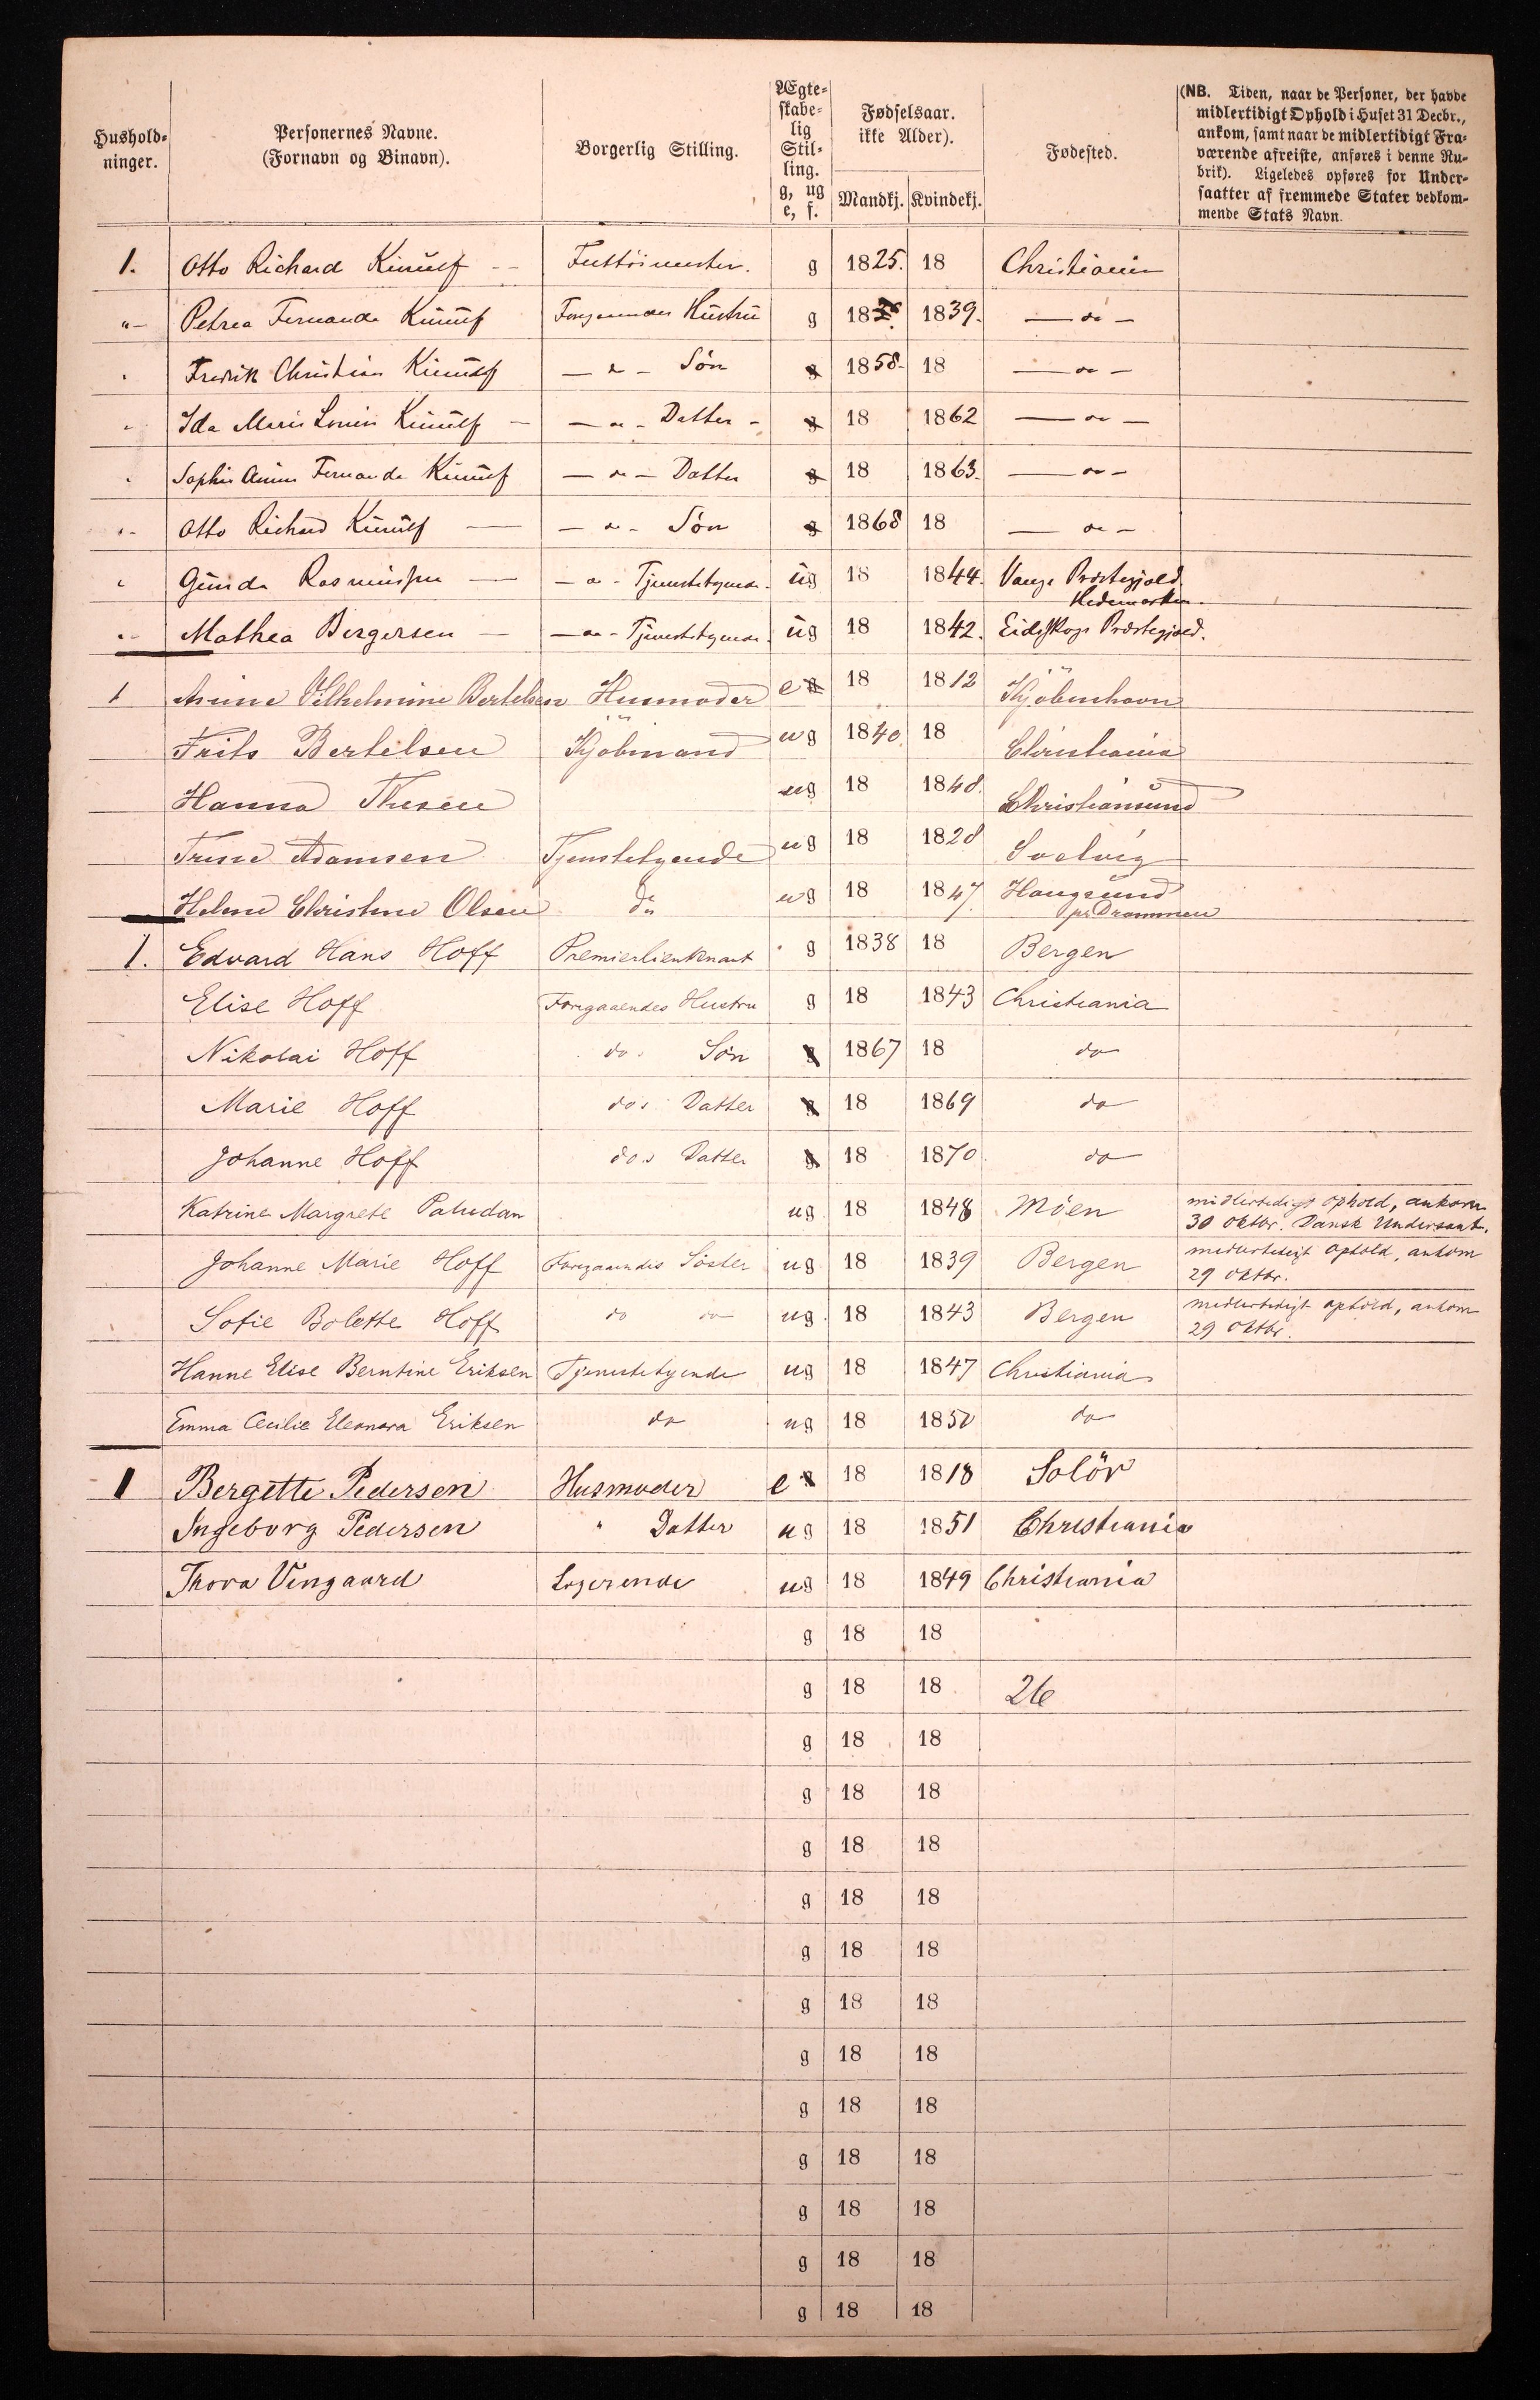 Hushold-
ninger.
Personernes Navne.
(Fornavn og Binavn).
Borgerlig Stilling.
Ægte-
skabe-
lig
Stil-
ling.
g, ug
e, f.
Fødselsaar.
ikke Alder).
Mandkj. Kvindekj.
Fødested.
(NB. Tiden, naar de Personer, der havde
midlertidigt Ophold i Huset 31 Decbr.,
ankom, samt naar de midlertidigt Fra-
værende afreiste, anføres i denne Ru-
brik). Ligeledes opføres for Under-
saatter af fremmede Stater vedkom-
mende Stats Navn.
1. Otto Richard g 1825. 18 Christiania
"- Petrea Fernanda Hustru g 18 1839. — do -
Fredrik Christian — do - Søn 1858- 18 — do -
Ida Marie Louise — do - Datter - 18 1862 — do -
Sophie Fernanda — do - Datter 18 1863. — do -
Otto Richard — do - Søn 1868 18 — do -
Gunda Rasmussen — do - Tjenstetyende. ug 18 1844. Vangs Præstegjeld
Hedemarken.
Mathea Bergersen — do - Tjenstetyende. ug 18 1842. Eidskogs Præstegjeld.
1 Vilhelmine Bertelsen Husmoder e 18 1812 Kjöbenhavn
Frits Bertelsen Kjöbmand ug 1840 18 Christiania
Hanna Thesen ug 18 1848. Christiansund
Trine Adamsen Tjenstetyende ug 18 1828 Svelvig
Helene Christine Olsen do ug 18 1847 Hougsund
pr Drammen
1. Edvard Hans Hoff Premierlieutenant g 1838 18 Bergen
Elise Hoff Foregaaendes Hustru g 18 1843 Christiania
Nikolai Hoff do. Søn 1867 18 do
Marie Hoff do. Datter 18 1869 do
Johanne Hoff do. Datter 18 1870 do
Katrine Margrete Paludan ug 18 1848 Möen midlertidigt ophold, ankom
30 oktbr. Dansk Undersaat.
Johanne Marie Hoff Foregaaendes Søster ug 18 1839 Bergen midlertidigt ophold, ankom
29 oktbr.
Sofie Bolette Hoff do do ug. 18 1843 Bergen midlertidigt ophold, ankom
29 oktbr.
Hanne Elise Berntine Eriksen Tjenestetyende ug 18 1847 Christiania
Emma Cecilie Eleonora Eriksen do ug 18 1850 do
1 Bergette Pedersen Husmoder e 18 1818 Solör
Ingeborg Pedersen " Datter ug 18 1851 Christiania
Thora Vengaard Logerende ug 18 1849 Christiania
g 18 18
g 18 18 26
g 18 18
g 18 18
g 18 18
g 18 18
g 18 18
g 18 18
g 18 18
g 18 18
g 18 18
g 18 18
g 18 18
g 18 18